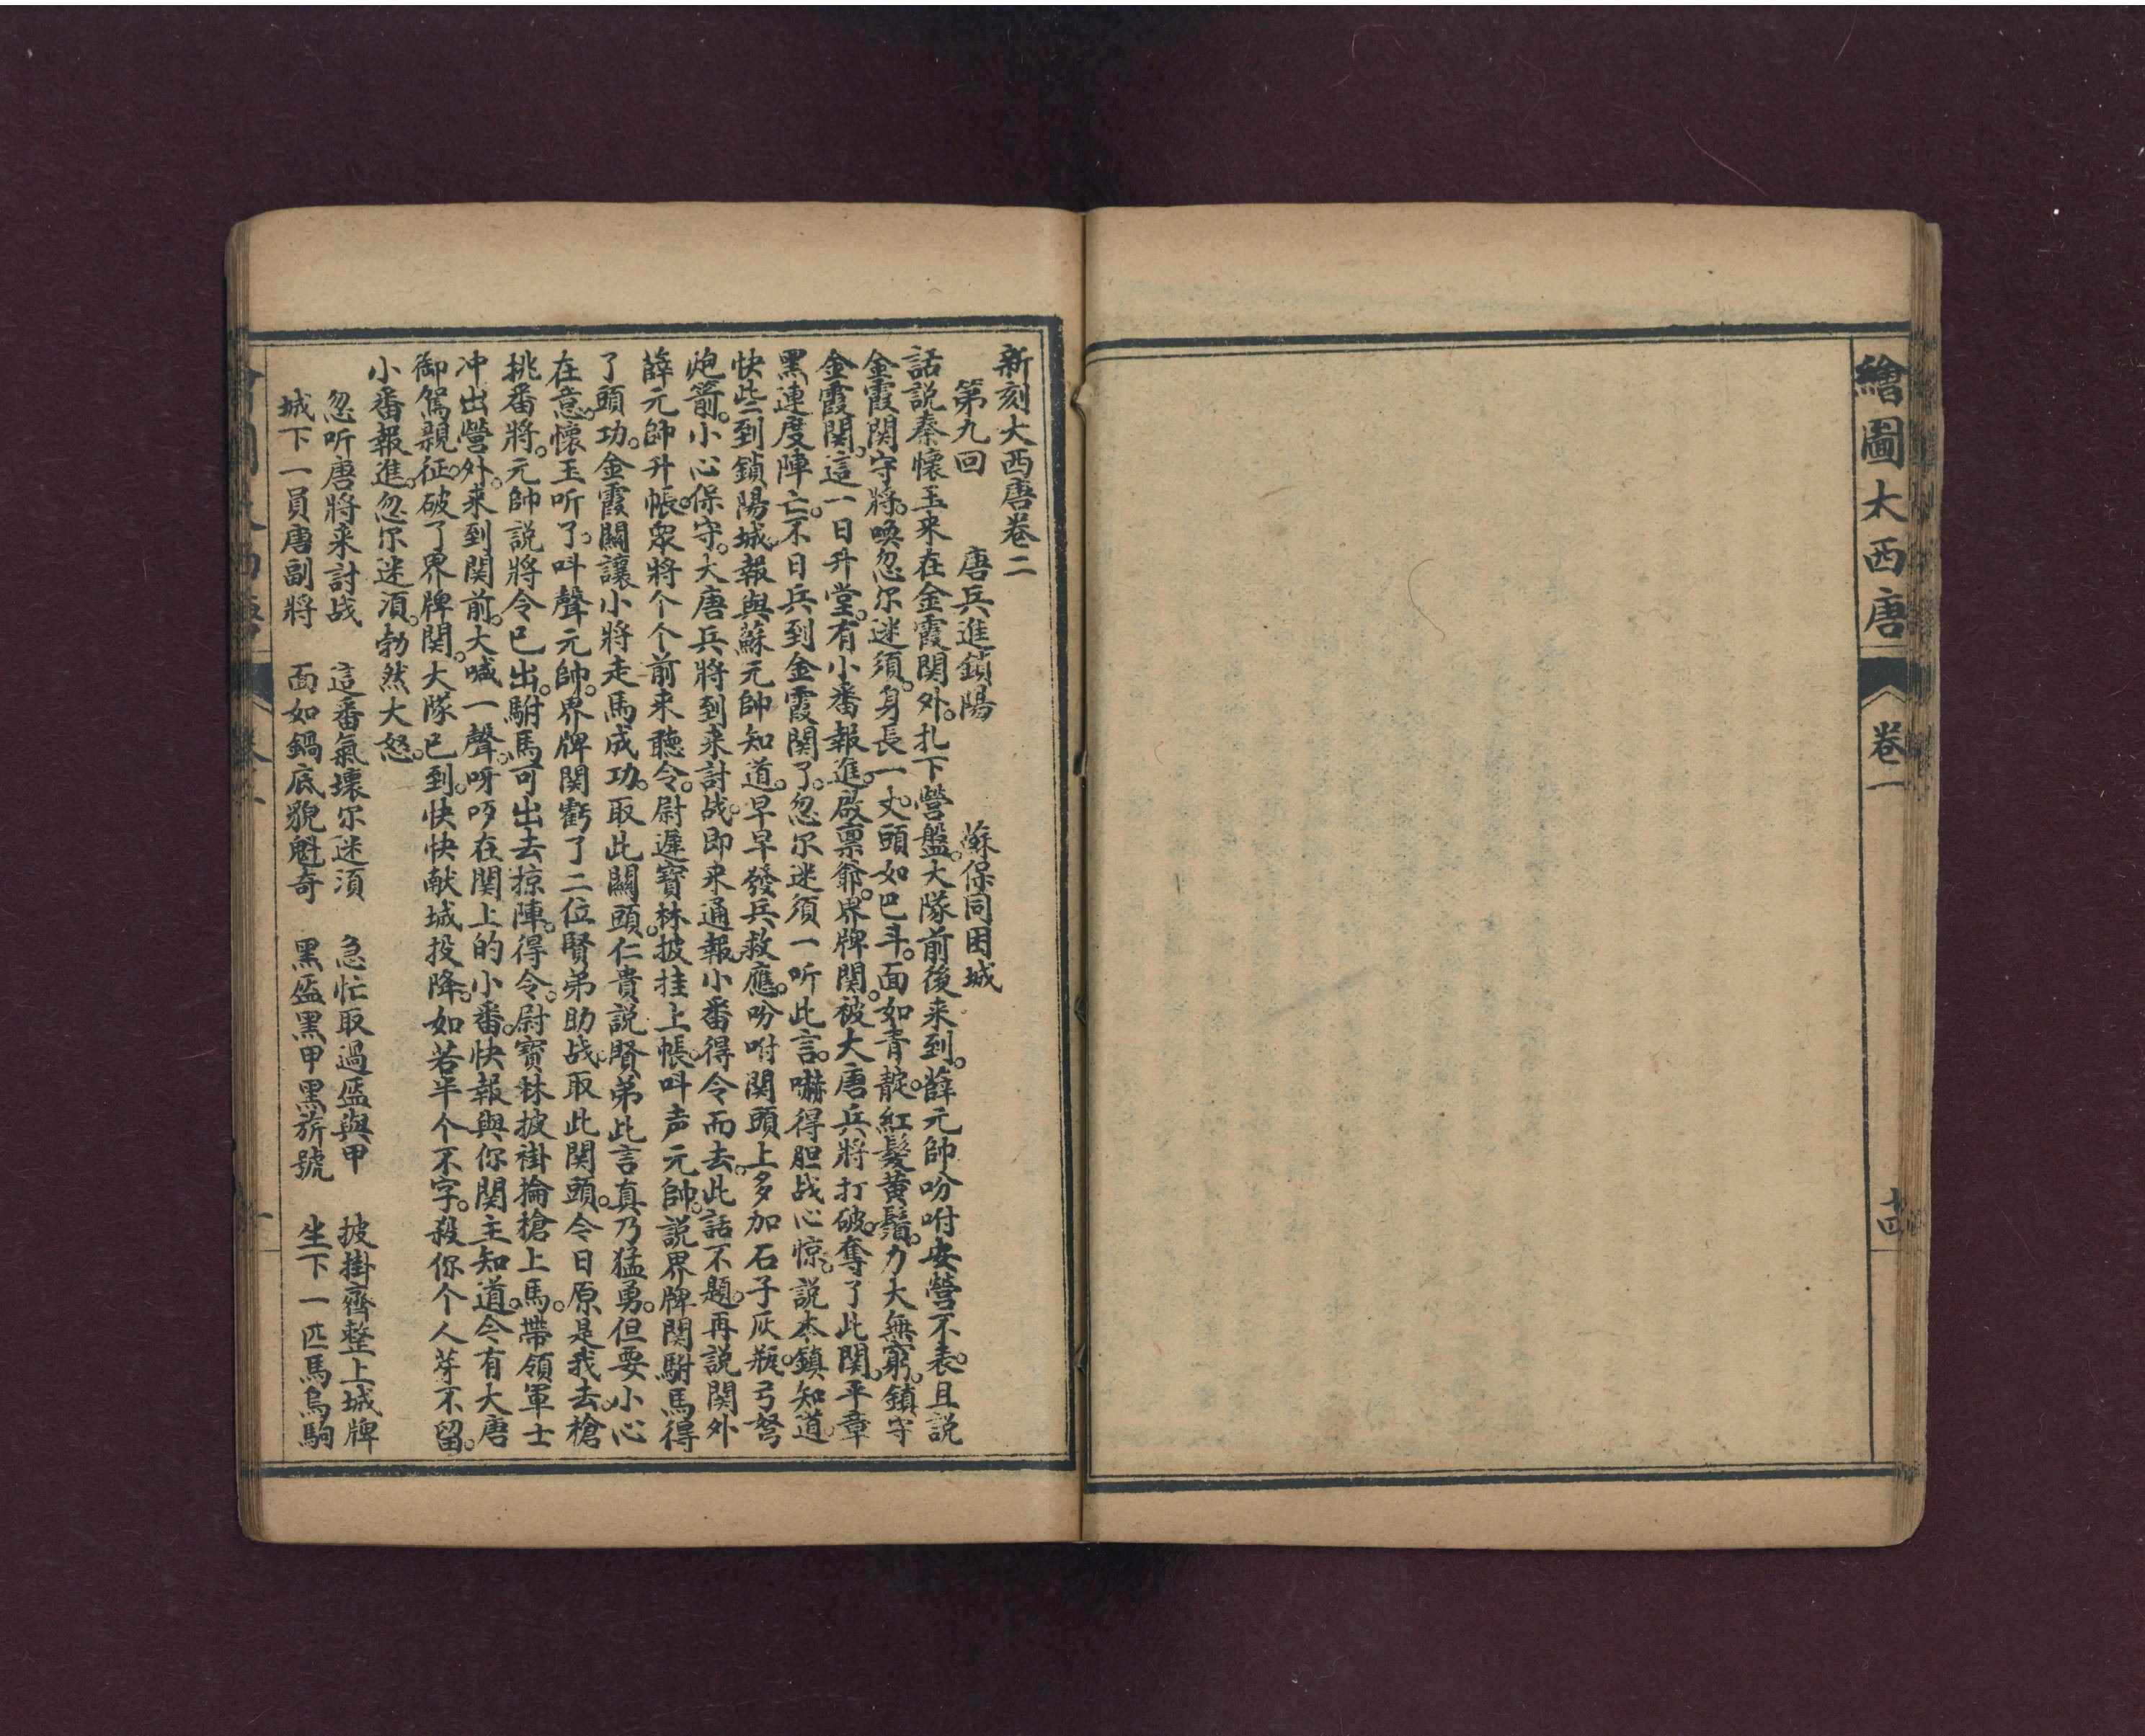 繪圖大西唐
卷一
十四
新刻大西唐卷二
第九回 唐兵進鎖陽 蘇保同困城
話説秦懷玉来在金霞関外。扎下營盤。大隊前後来到。薛元帥吩咐安營不表。且説
金霞関守將。喚忽尔迷須。身長一丈。頭如巴斗。面如青靛。紅髮黄鬚。力大無窮。鎮守
金霞関。這一日升堂。有小番報進。啟禀爺。界牌関。被大唐兵將打破。奪了此関。平章
黑連度陣亡。不日兵到金霞関了。忽尔迷須一听此言。嚇得胆战心惊。説本鎮知道。
快些到鎖陽城。報與蘇元帥知道。早早發兵救應。吩咐関頭上多加石子灰瓶弓弩
炮箭。小心保守。大唐兵將到来討战。即来通報。小番得令而去。此話不題。再説関外
薛元帥升帳。衆將个个前来聽令。尉遲寳林披挂上帳。叫声元帥。説界牌関駙馬得
了頭功。金霞關讓小將走馬成功。取此關頭。仁貴説賢弟此言真乃猛勇。但要小心
在意。懷玉听了。叫聲元帥。界牌関虧了二位賢弟助战。取此関頭。今日原是我去。槍
挑番將。元帥説將令已出。駙馬可出去掠陣。得令。尉寳林披褂掄槍上馬。帶領軍士
冲出營外。来到関前。大喊一聲。呀呔在関上的小番。快報與你関主知道。今有大唐
御駕親征。破了界牌関。大隊已到。快快献城投降。如若半个不字。殺你个人芽不留。
小番報進。忽尔迷湏。勃然大怒。
忽听唐將来討战 這番氣壞尔迷湏 急忙取過盔與甲 披掛齊整上城牌
城下一員唐副將 面如鍋底貌魁奇 黑盔黑甲黑旂號 坐下一匹馬烏駒